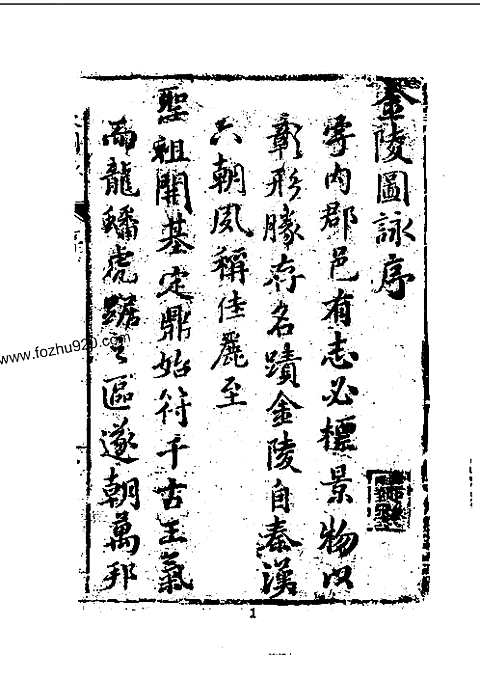 金陵圖詠序
寰內郡邑有志必標景物以
彰形勝存名蹟金陵自秦漢
六朝夙稱佳麗至
聖祖開基定鼎始符千古王氣
而龍蟠虎踞之區遂朝萬邦
www.fozhu920.com
1